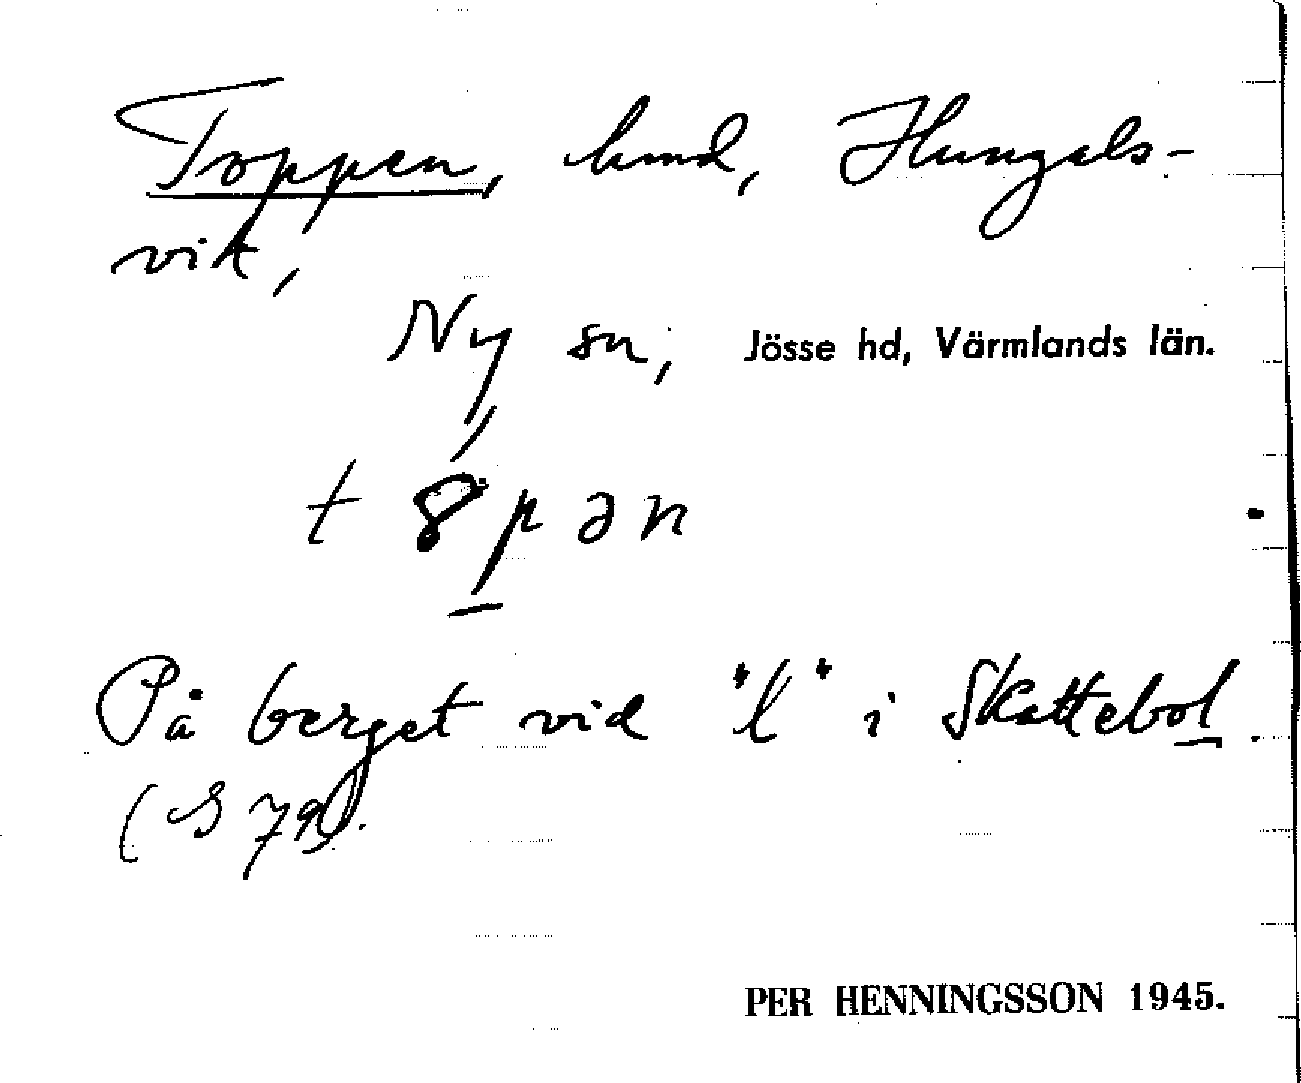 Toppen, hmd, Hungals-
vik,
Ny sn, Jösse hd, Värmlands län.
t8pən
På berget vid "l" i Skattebol
(S 79).
PER HENNINGSSON 1945.